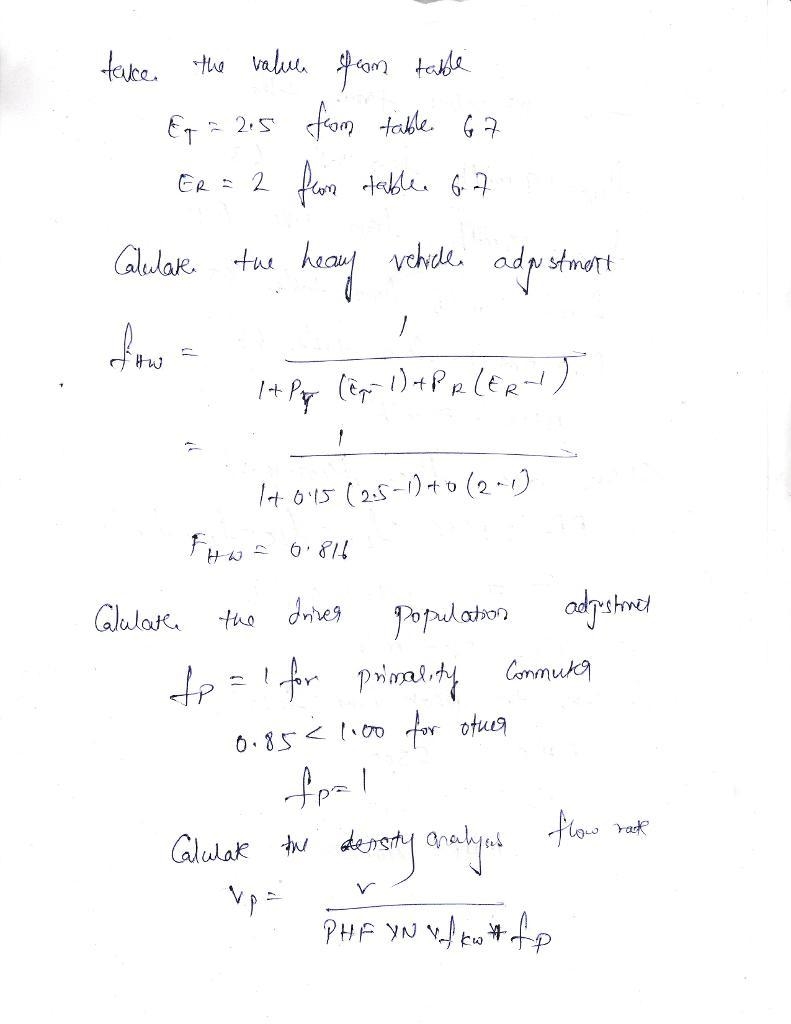 take the value from table
ET = 2.5 from table 6 7
ER = 2 from table 6.7
Calulate the heavy vehicle adjustment
fHW = 1 / 1 + PT (ET - 1) + PR (ER - 1)
= 1 / 1 + 0.15 (2.5 - 1) + 0 (2 - 1)
FHW = 0.816
Calulate the driver population adjustmet
fP = 1 for primality Commuter
0.85 < 1.00 for other
fP = 1
Calulate the density analysis flow rate
VP = v / PHF × N × fHW * fP